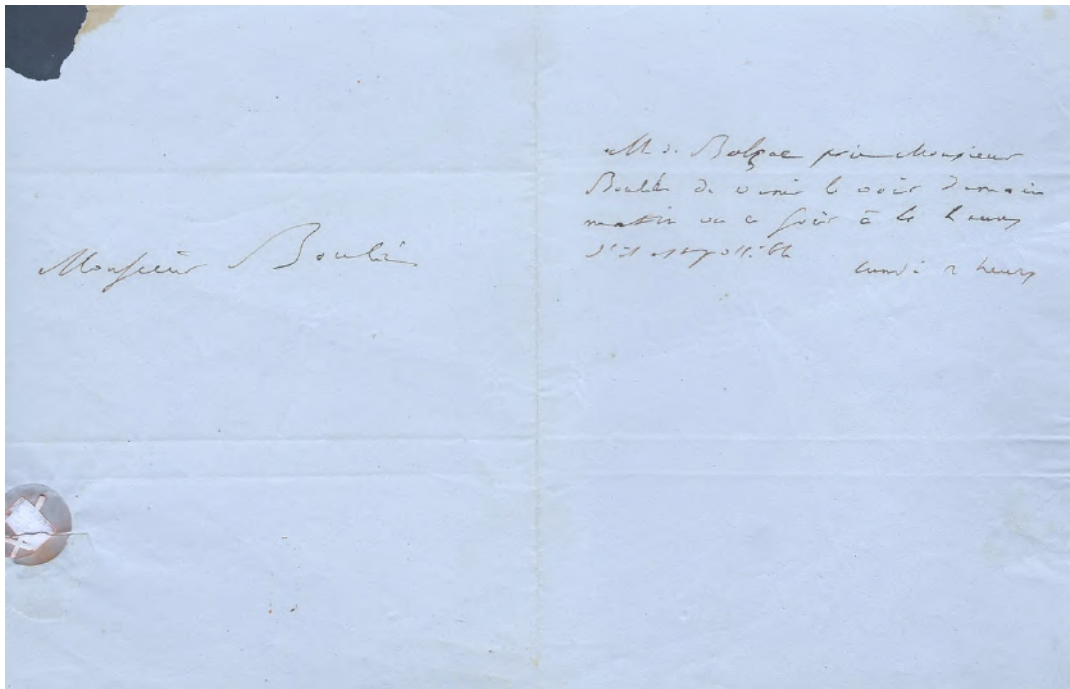 Monsieur Boulé
M. de Balzac prie Monsieur
Boulé de venir le voir demain
matin ou ce soir à 6 heures
s'il est possible
lundi 2 heures